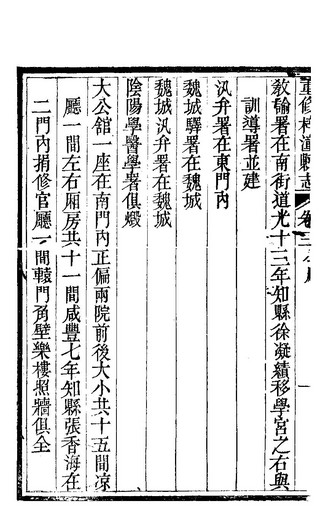 重修梓潼縣志
卷二
教諭署在南街道光十三年知縣徐凝績移學宮之右與
訓導署並建
汛弁署在東門內
魏城驛署在魏城
魏城汛弁署在魏城
陰陽學醫學署俱燬
大公館一座在南門內正偏兩院前後大小共十五間凉
廳一間左右厢房共十一間咸豐七年知縣張香海在
二門內捐修官廳一間轅門角壁樂樓照牆俱全